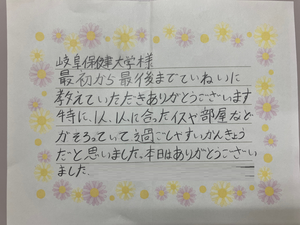 岐阜保健大学様
最初から最後までていねいに
教えていただきありがとうございます
特に、人、人に合ったイスや部屋などが
かそろっていて過ごしやすいかんきょう
だと思いました、本日はありがとうござい
ました、